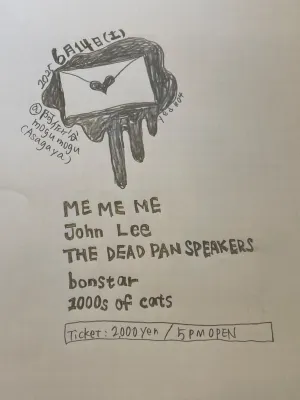 2025 6月14日(土)
@阿佐ヶ谷
mogumogu
(Asagaya)
ME ME ME
John Lee
THE DEAD PAN SPEAKERS
bonstar
1000s of cats
Ticket: 2,000 yen / 5 PM OPEN